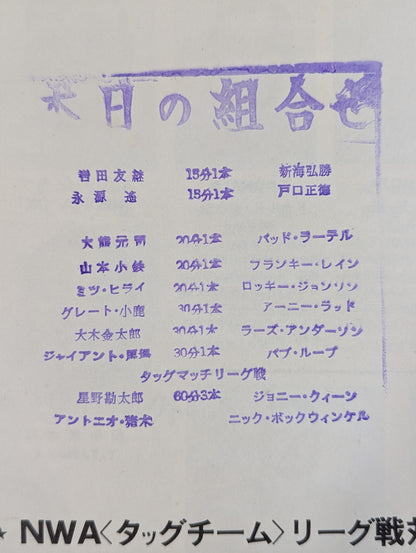 本日の組合せ
岩田友継 15分1本 新海弘勝
永源遙 15分1本 戸口正徳
大熊元司 20分1本 バッド・ラーテル
山本小鉄 20分1本 フランキー・レイン
ミツ・ヒライ 20分1本 ロッキー・ジョンソン
グレート・小鹿 30分1本 アーニー・ラッド
大木金太郎 30分1本 ラーズ・アンダーソン
ジャイアント・馬場 30分1本 バブ・ループ
タッグマッチリーグ戦
星野勘太郎 60分3本 ジョニー・クィーン
アントニオ・猪木 ニック・ボックウィンケル
NWA〈タッグチーム〉リーグ戦